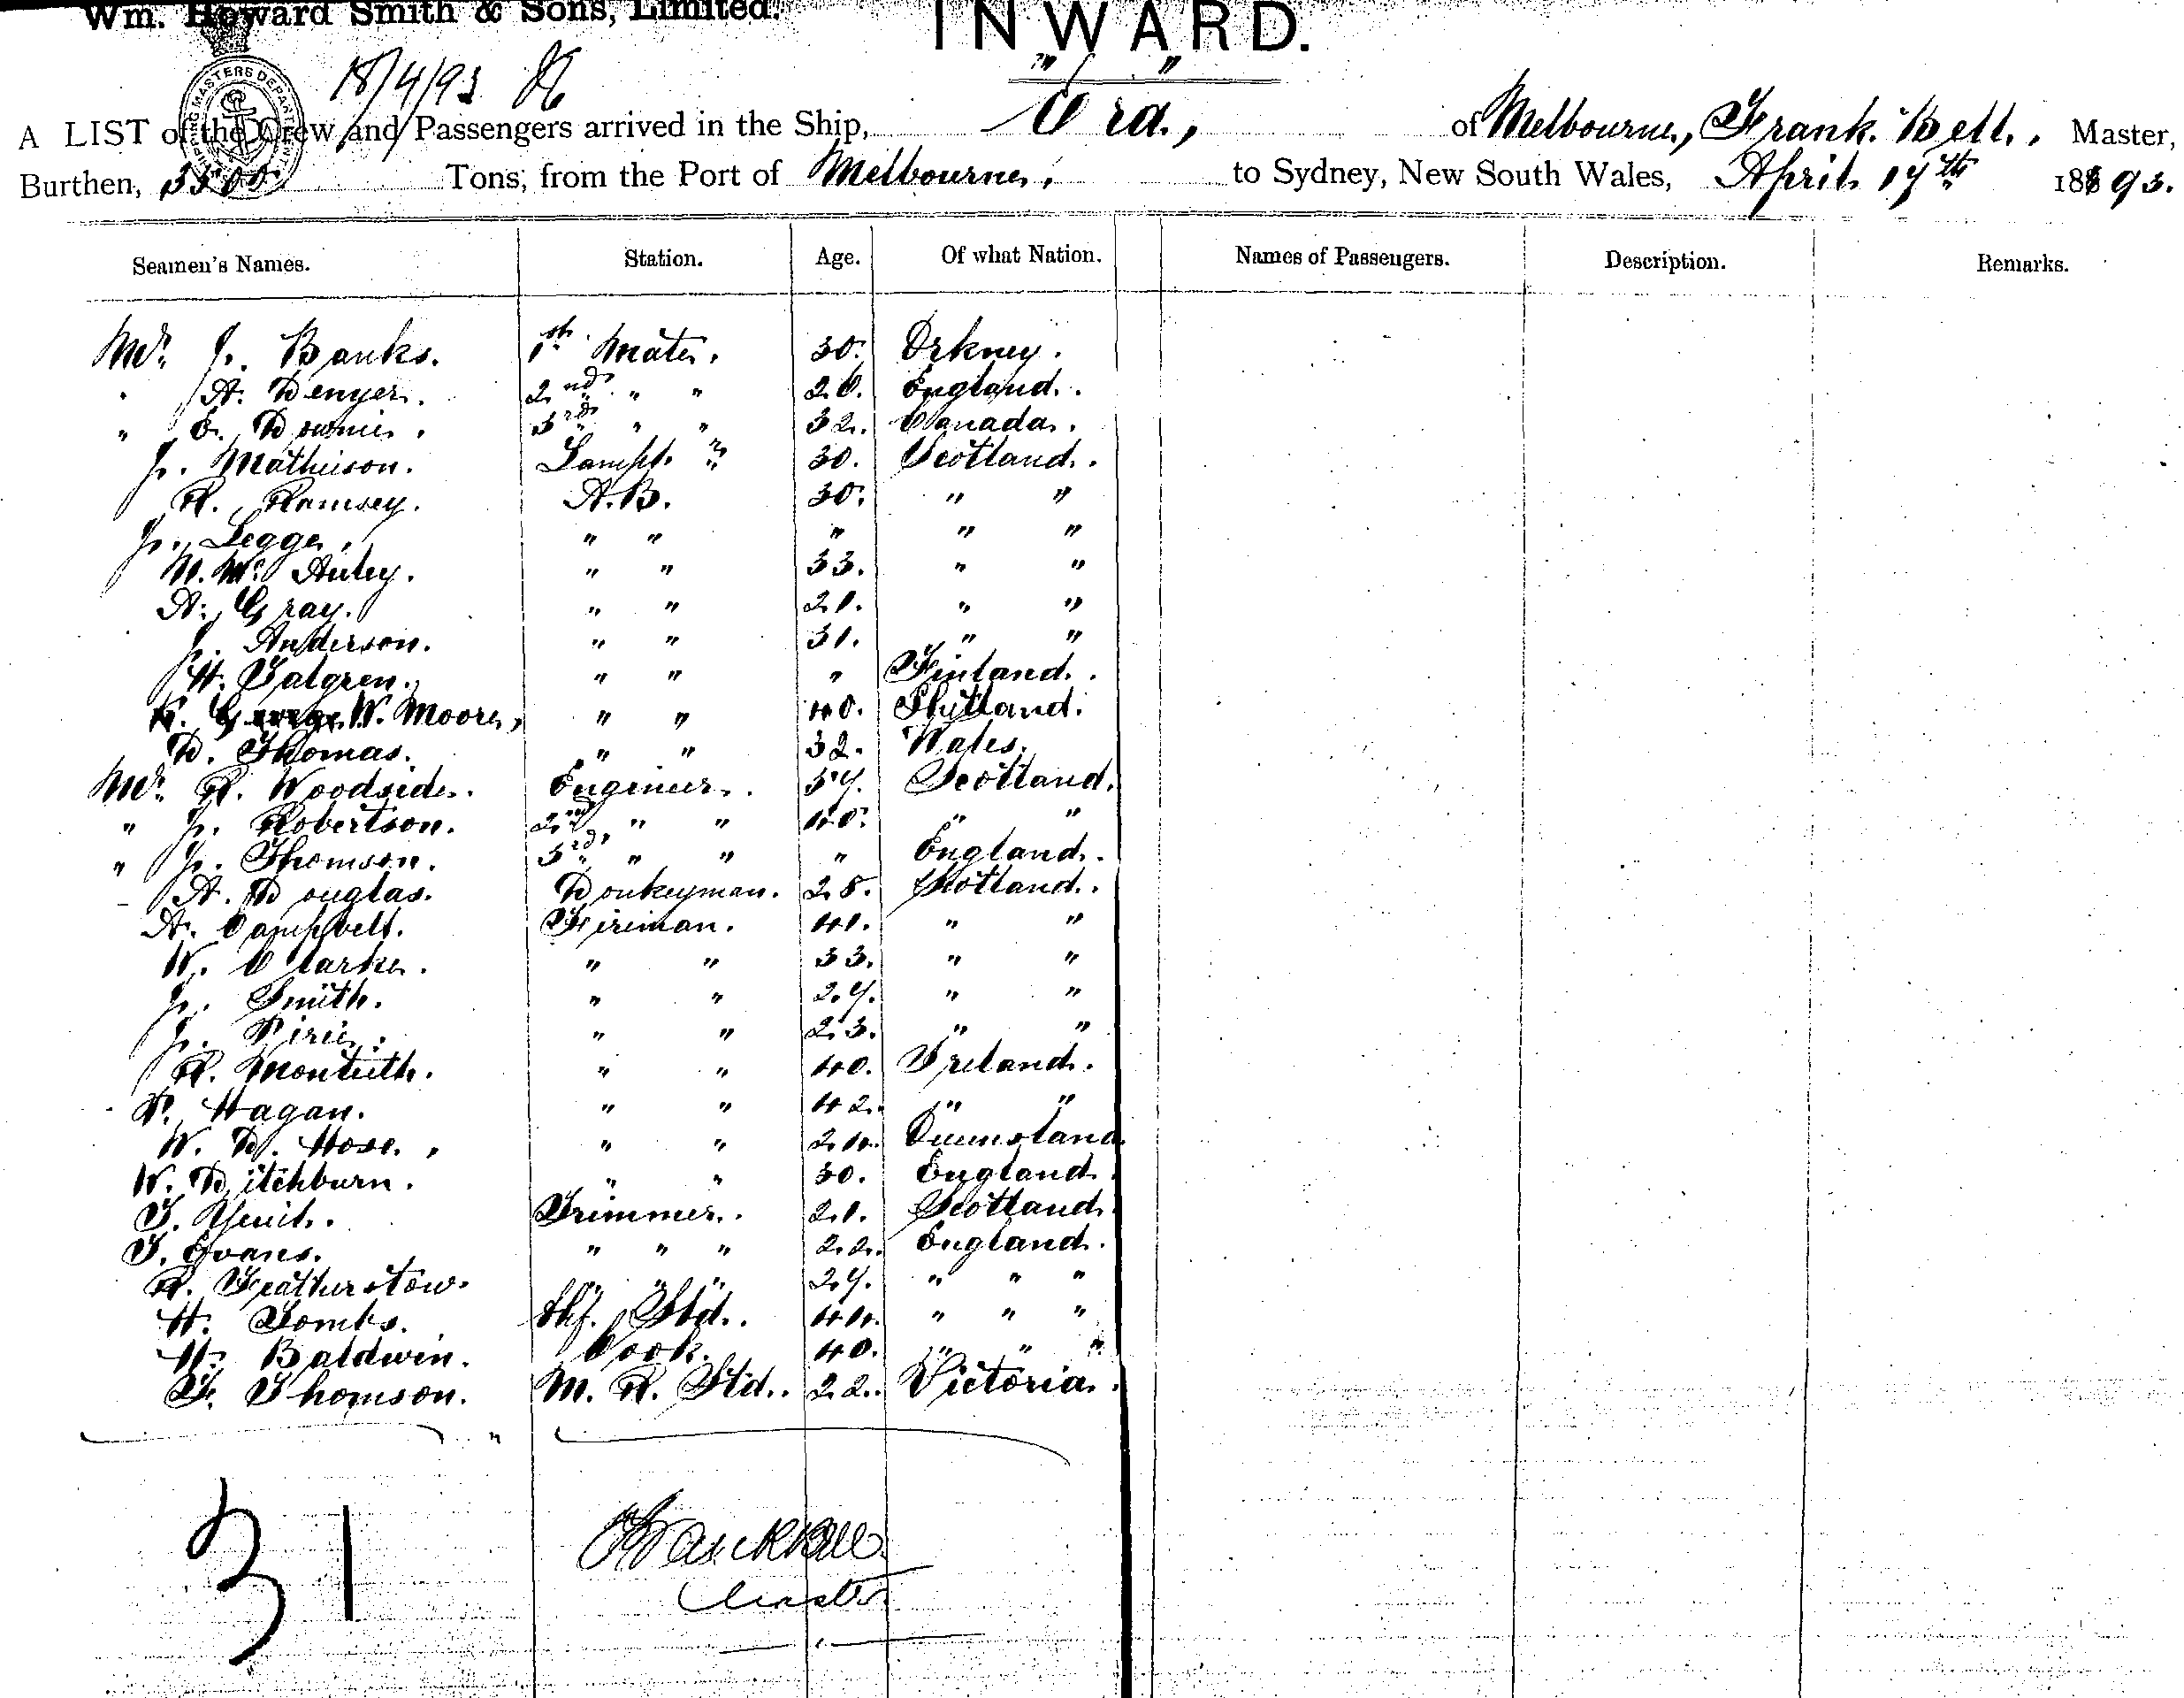 Wm. Howard Smith & Sons, Limited.
INWARD.
18/4/93
A LIST of the Crew and Passengers arrived in the Ship, Era, of Melbourne, Frank Bell, Master,
Burthen, 3500 Tons, from the Port of Melbourne, to Sydney, New South Wales, April 17th 1893.
Seamen's Names. Station. Age. Of what Nation. Names of Passengers. Description. Remarks.
Mr. J. Banks. 1st Mate. 30. Orkney.
" A. Denyer. 2nd " " 26. England.
" E. Downie. 3rd " " 32. Canada.
J. Mathieson. Lampt. " 30. Scotland.
R. Ramsey. A.B. 30. " "
J. Legge. " " " " "
N. Mc Auley. " " 33. " "
A. Gray. " " 21. " "
J. Anderson. " " 31. " "
H. Talgren. " " " Finland.
W. Moore, " " 40. Shetland.
D. Thomas. " " 32. Wales.
Mr. R. Woodside. Engineer. 37. Scotland.
" J. Robertson. 2nd " " 40. " "
" J. Thomson. 3rd " " " England.
A. Douglas. Donkeyman. 28. Scotland.
A. Campbell. Fireman. 41. " "
W. Clarke. " " 33. " "
J. Smith. " " 27. " "
J. Pirie. " " 23. " "
R. Monteith. " " 40. Ireland.
P. Hagan. " " 42. " "
W. D. Hose. " " 24. Queensland
W. Ditchburn. " " 30. England.
T. Yeuil. Trimmer. 21. Scotland.
T. Evans. " " " 22. England.
R. Featherstow. " " " 27. " " "
H. Tombs. Chf. Std. 44. " " "
H. Baldwin. Cook. 40. " " "
F. Thomson. M. R. Std. 22. Victoria.
31
Frank Bell
Master